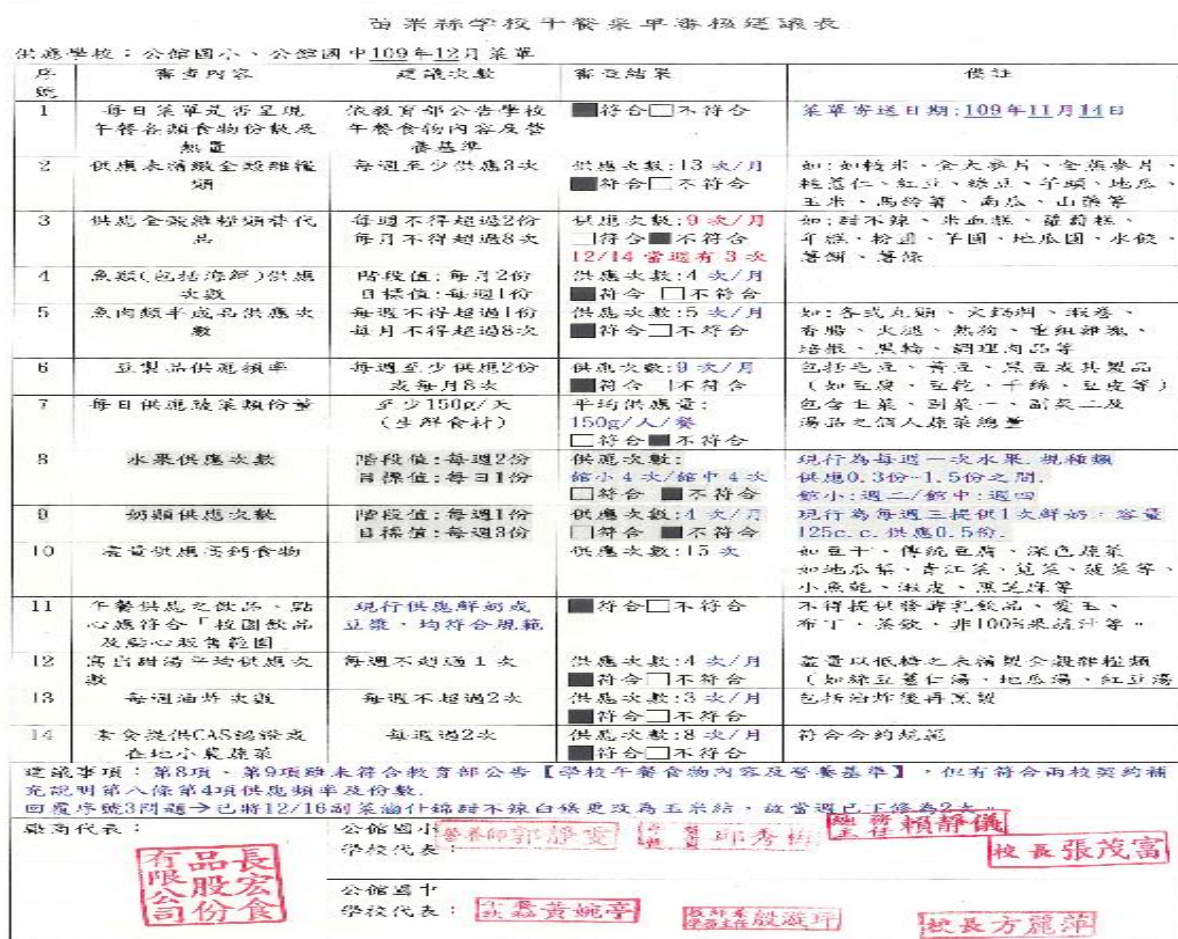 苗栗縣學校午餐菜單審核建議表
供應學校：公館國小、公館國中109年12月菜單
序號 審查內容 建議次數 審查結果 備註
1 每日菜單是否呈現午餐各類食物份數及熱量 依教育部公告學校午餐食物內容及營養基準 ■符合□不符合 菜單寄送日期:109年11月14日
2 供應未精緻全穀雜糧類 每週至少供應3次 供應次數:13 次/月 ■符合□不符合 如:如糙米、全大麥片、全燕麥片、糙薏仁、紅豆、綠豆、芋頭、地瓜、玉米、馬鈴薯、南瓜、山藥等
3 供應全穀雜糧類替代品 每週不得超過2份 每月不得超過8次 供應次數:9 次/月 □符合■不符合 12/14 當週有 3 次 如:甜不辣、米血糕、蘿蔔糕、年糕、粉圓、芋圓、地瓜圓、水餃、薯餅、薯條
4 魚類(包括海鮮)供應次數 階段值:每月2份 目標值:每週1份 供應次數:4 次/月 ■符合 □不符合
5 魚肉類半成品供應次數 每週不得超過1份 每月不得超過8次 供應次數:5 次/月 ■符合□不符合 如:各式丸類、火鍋料、蝦卷、香腸、火腿、熱狗、重組雞塊、培根、黑輪、調理肉品等
6 豆製品供應頻率 每週至少供應2份或每月8次 供應次數:9 次/月 ■符合 □不符合 包括毛豆、黃豆、黑豆或其製品（如豆腐、豆乾、干絲、豆皮等）
7 每日供應蔬菜類份量 至少150g/天（生鮮食材） 平均供應量: 150g/人/餐 □符合■不符合 包含主菜、副菜一、副菜二及湯品之個人蔬菜總量
8 水果供應次數 階段值:每週2份 目標值:每日1份 供應次數: 館小 4 次/館中 4 次 □符合 ■不符合 現行為每週一次水果,視種類供應0.3份~1.5份之間. 館小:週二/館中:週四
9 奶類供應次數 階段值:每週1份 目標值:每週3份 供應次數:4 次/月 □符合 ■不符合 現行為每週三提供1次鮮奶,容量125c.c.供應0.5份.
10 盡量供應高鈣食物 供應次數:15 次 如豆干、傳統豆腐、深色蔬菜如地瓜葉、青江菜、莧菜、菠菜等、小魚乾、蝦皮、黑芝麻等
11 午餐供應之飲品、點心應符合「校園飲品及點心販售範圍 現行供應鮮奶或豆漿、均符合規範 ■符合□不符合 不得提供發酵乳飲品、愛玉、布丁、茶飲、非100%果蔬汁等。
12 寫白甜湯平均供應次數 每週不超過 1 次 供應次數:4 次/月 ■符合□不符合 盡量以低糖之未精製全穀雜糧類（如綠豆薏仁湯、地瓜湯、紅豆湯
13 每週油炸次數 每週不超過2次 供應次數:3 次/月 ■符合□不符合 包括油炸後再烹製
14 素食提供CAS認證或在地小農蔬菜 每週過2次 供應次數:8 次/月 ■符合□不符合 符合合約規範
建議事項：第8項、第9項雖未符合教育部公告【學校午餐食物內容及營養基準】，但有符合兩校契約補
充說明第八條第4項供應頻率及份數.
回覆序號3問題→已將12/16副菜滷什錦甜不辣白條更改為玉米結，故當週已下修為2次。
廠商代表：
長宏食品股份有限公司
公館國小
學校代表：
營養師郭靜雯 邱秀梅 總務主任賴靜儀 校長張茂富
公館國中
學校代表：
黃婉亭 殷漩玶 校長方麗萍